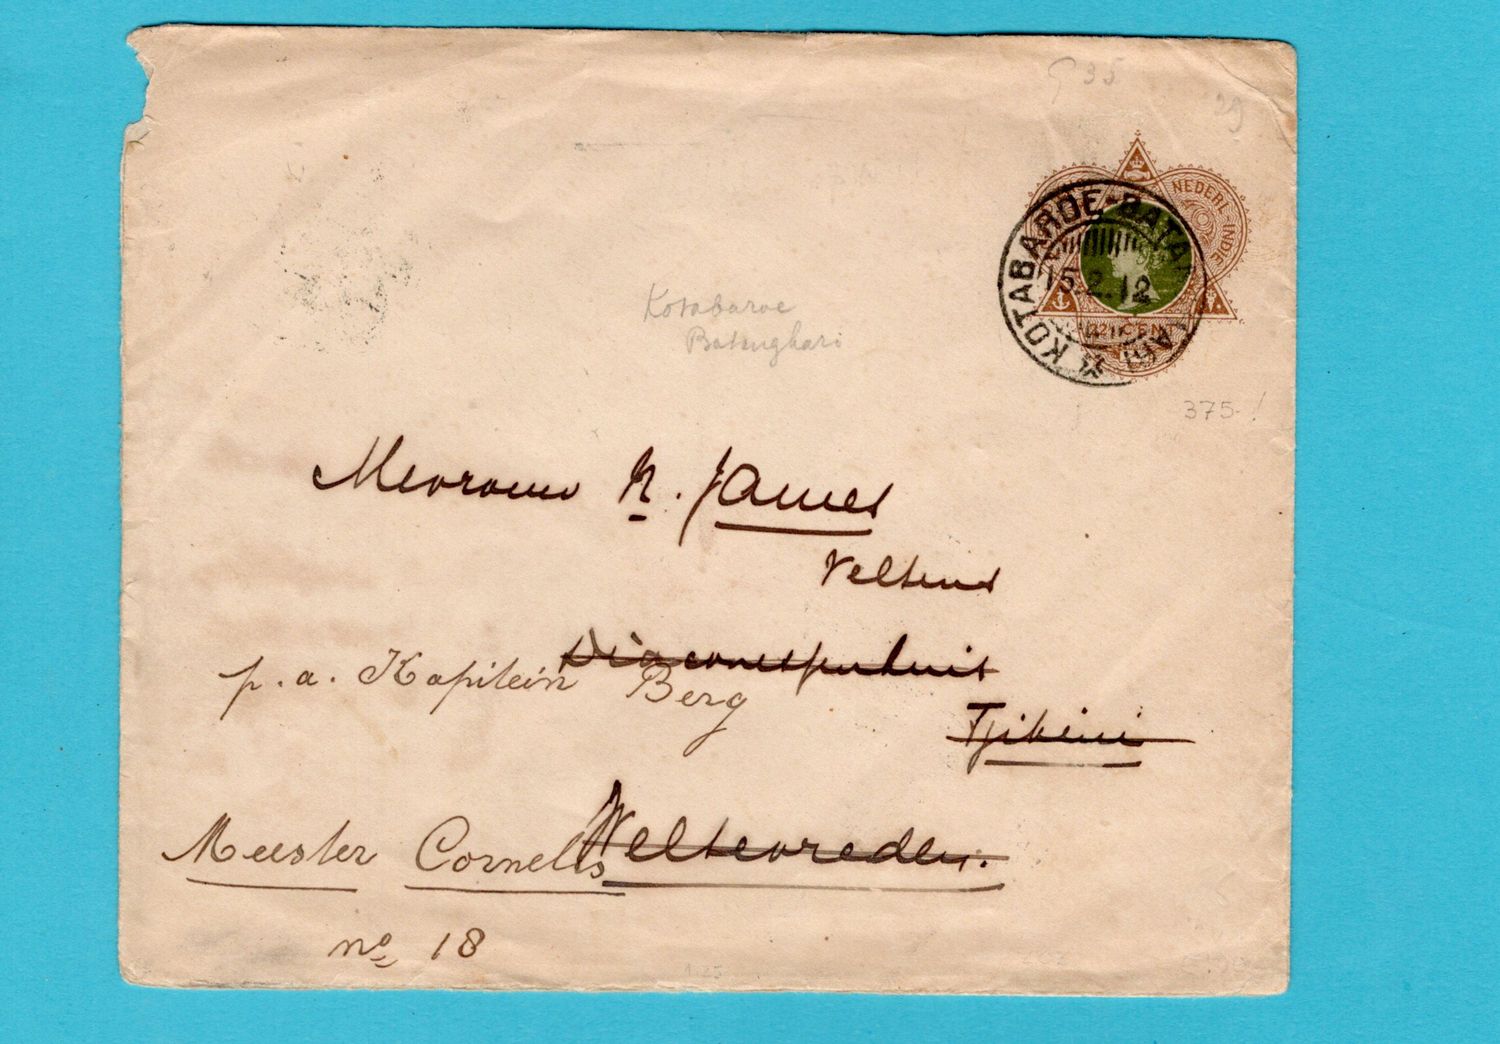 G 35
29
NEDERL-INDIE
12½ CENT
KOTABAROE-BATANGHARI
15.2.12
Kotabaroe
Batanghari
375-!
Mevrouw N. James
Veltens
Diaconessenhuis
p.a. Kapitein Berg
Tjikini
Meester Cornelis
Weltevreden.
no 18
1.25